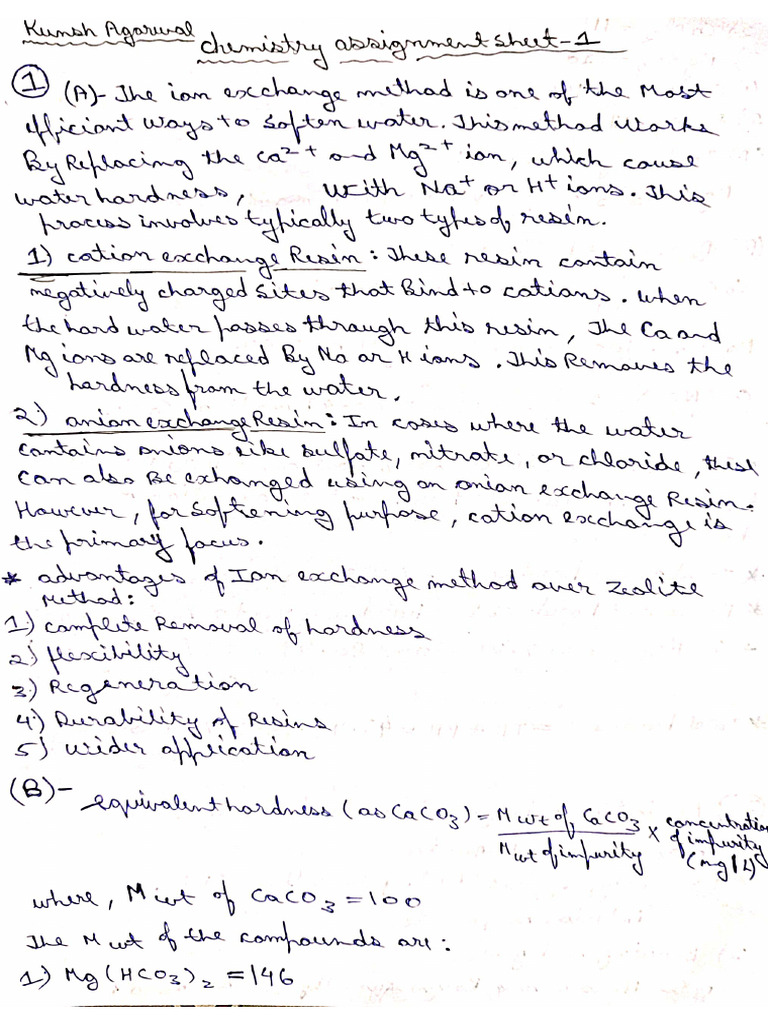 Kunsh Agarwal
chemistry assignment sheet-1
1 (A)- The ion exchange method is one of the Most
efficiant ways to soften water. This method works
By Replacing the Ca2+ and Mg2+ ion, which cause
water hardness, with Na+ or H+ ions. This
process involves typically two types of resin.
1) cation exchange Resin: These resin contain
negatively charged sites that Bind to cations. When
the hard water passes through this resin, The Ca and
Mg ions are replaced By Na or H ions. This Removes the
hardness from the water.
2) anion exchange Resin: In cases where the water
contains anions like sulfate, nitrate, or chloride, these
can also Be exhanged using an anion exchange Resin.
However, for softening purpose, cation exchange is
the primary focus.
* advantages of Ion exchange method over Zeolite
Method:
1) complete Removal of hardness
2) flexibility
3) Regeneration
4) Durability of Resins
5) wider application
(B)- equivalent hardness (as CaCO3) = M wt of CaCO3 / M wt of impurity × concentration of impurity (mg/L)
where, M wt of CaCO3 = 100
The M wt of the compounds are:
1) Mg(HCO3)2 = 146